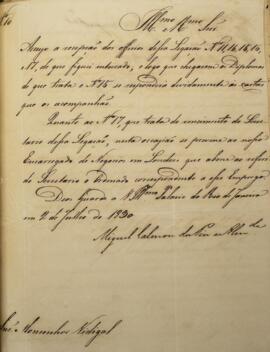 Illmo e Rmo Snr
Accuso a recepção dos officios dessa Legação Nos 14, 15, 16,
e 17, de que fiquei inteirado, e logo que chegarem os Diplomas
de que trata o No 15 se responderá devidamente ás cartas
que os acompanhão.
Quanto ao No 17, que trata do vencimento do Secre-
tario dessa Legação, nesta occasião se previne ao nosso
Encarregado de Negocios em Londres que abone ao referi-
do Secretario o Ordenado correspondente a esse Emprego.
Deos Guarde a V. Illma Palacio do Rio de Janeiro
em 2 de Julho de 1830
Miguel Calmon du Pin e Almda
Snr Monsenhor Vidigal